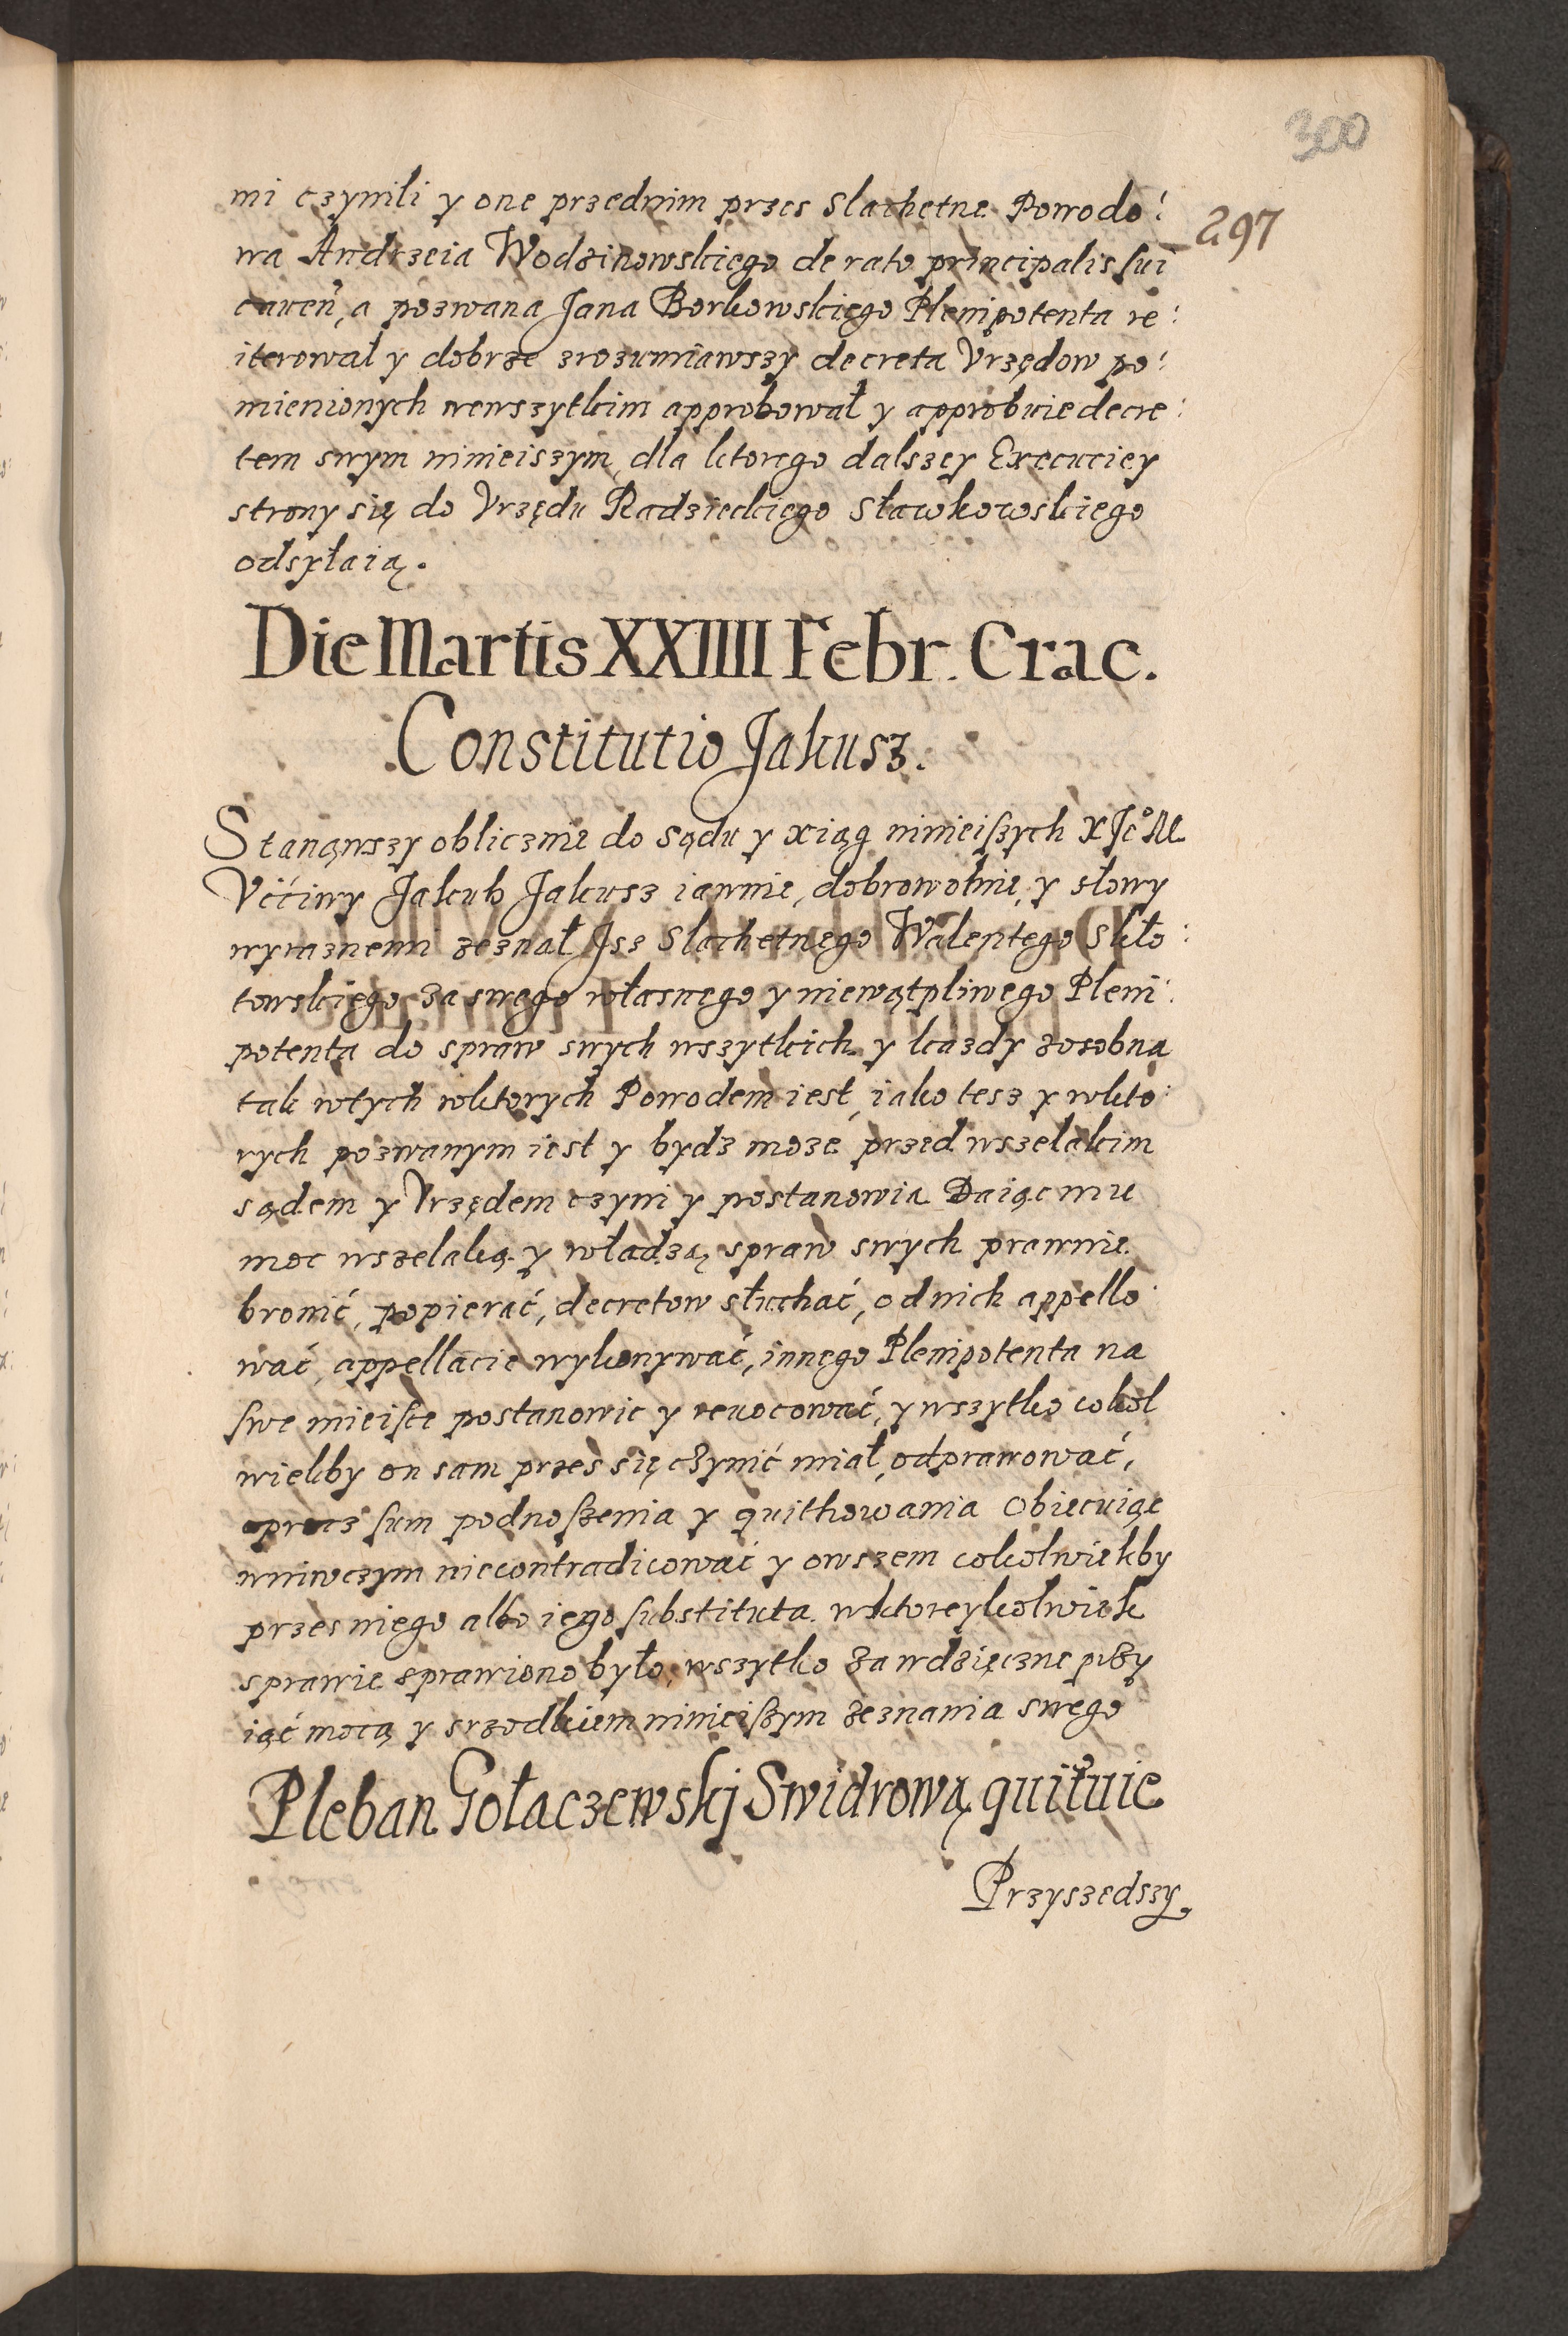 300
297
mi czynili y one przednim przes Slachetne Powodo:
wa Andrzeia Wodzinowskiego de rato principalis sui
cauen, a pozwana Jana Borkowskiego Plenipotenta re:
iterował y dobrze zrozumiawszy decreta Vrzędow po:
mienionych wewszytkim approbował y approbuie decre:
tem swym ninieiszym, dla ktorego dalszey Execuciey
strony się do Vrzędu Radzieckiego Sławkowskiego
odsyłaią.
Die Martis XXIIII Febr. Crac.
Constitutio Jakusz.
Stanąwszy oblicznie do sądu y xiąg ninieißych X Jº M
Vććiwy Jakub Jakusz iawnie, dobrowolnie, y słowy
wyraznemi zeznał Jsz Slachetnego Walentego Skło:
towskiego za swego własnego y niewątpliwego Pleni:
potenta do spraw swych wszytkich y kazdy zosobna
tak wtych wktorych Powodem iest, iako tesz y wkto:
rych pozwanym iest y bydz moze przed wszelakim
sądem y Vrzędem czyni y postanowia Daiąc mu
moc wszelaką y władzą spraw swych prawnie
bronić, popierać, decretow słuchać, od nich appello:
wać, appellacie wykonywać, innego Plenipotenta na
swe mieisce postanowic y reuocować, y wszytko cokol
wiekby on sam przes się czynić miał, odprawować,
oprocz sum podnoßenia y quithowania Obiecuiąc
wniwczym niecontradicować y owszem cokolwiekby
przes niego albo iego substituta wktoreykolwiek
sprawie sprawiono było, wszytko za wdzięczne przy
iąć mocą y srzodkiem ninieißym zeznania swego
Pleban Gołaczewskj Swidrową quituie
Przyszedszy